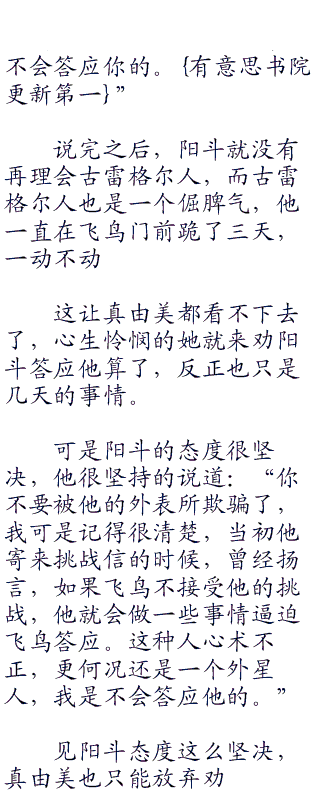 不会答应你的。{有意思书院
更新第一}”
说完之后，阳斗就没有
再理会古雷格尔人，而古雷
格尔人也是一个倔脾气，他
一直在飞鸟门前跪了三天，
一动不动
这让真由美都看不下去
了，心生怜悯的她就来劝阳
斗答应他算了，反正也只是
几天的事情。
可是阳斗的态度很坚
决，他很坚持的说道：“你
不要被他的外表所欺骗了，
我可是记得很清楚，当初他
寄来挑战信的时候，曾经扬
言，如果飞鸟不接受他的挑
战，他就会做一些事情逼迫
飞鸟答应。这种人心术不
正，更何况还是一个外星
人，我是不会答应他的。”
见阳斗态度这么坚决，
真由美也只能放弃劝